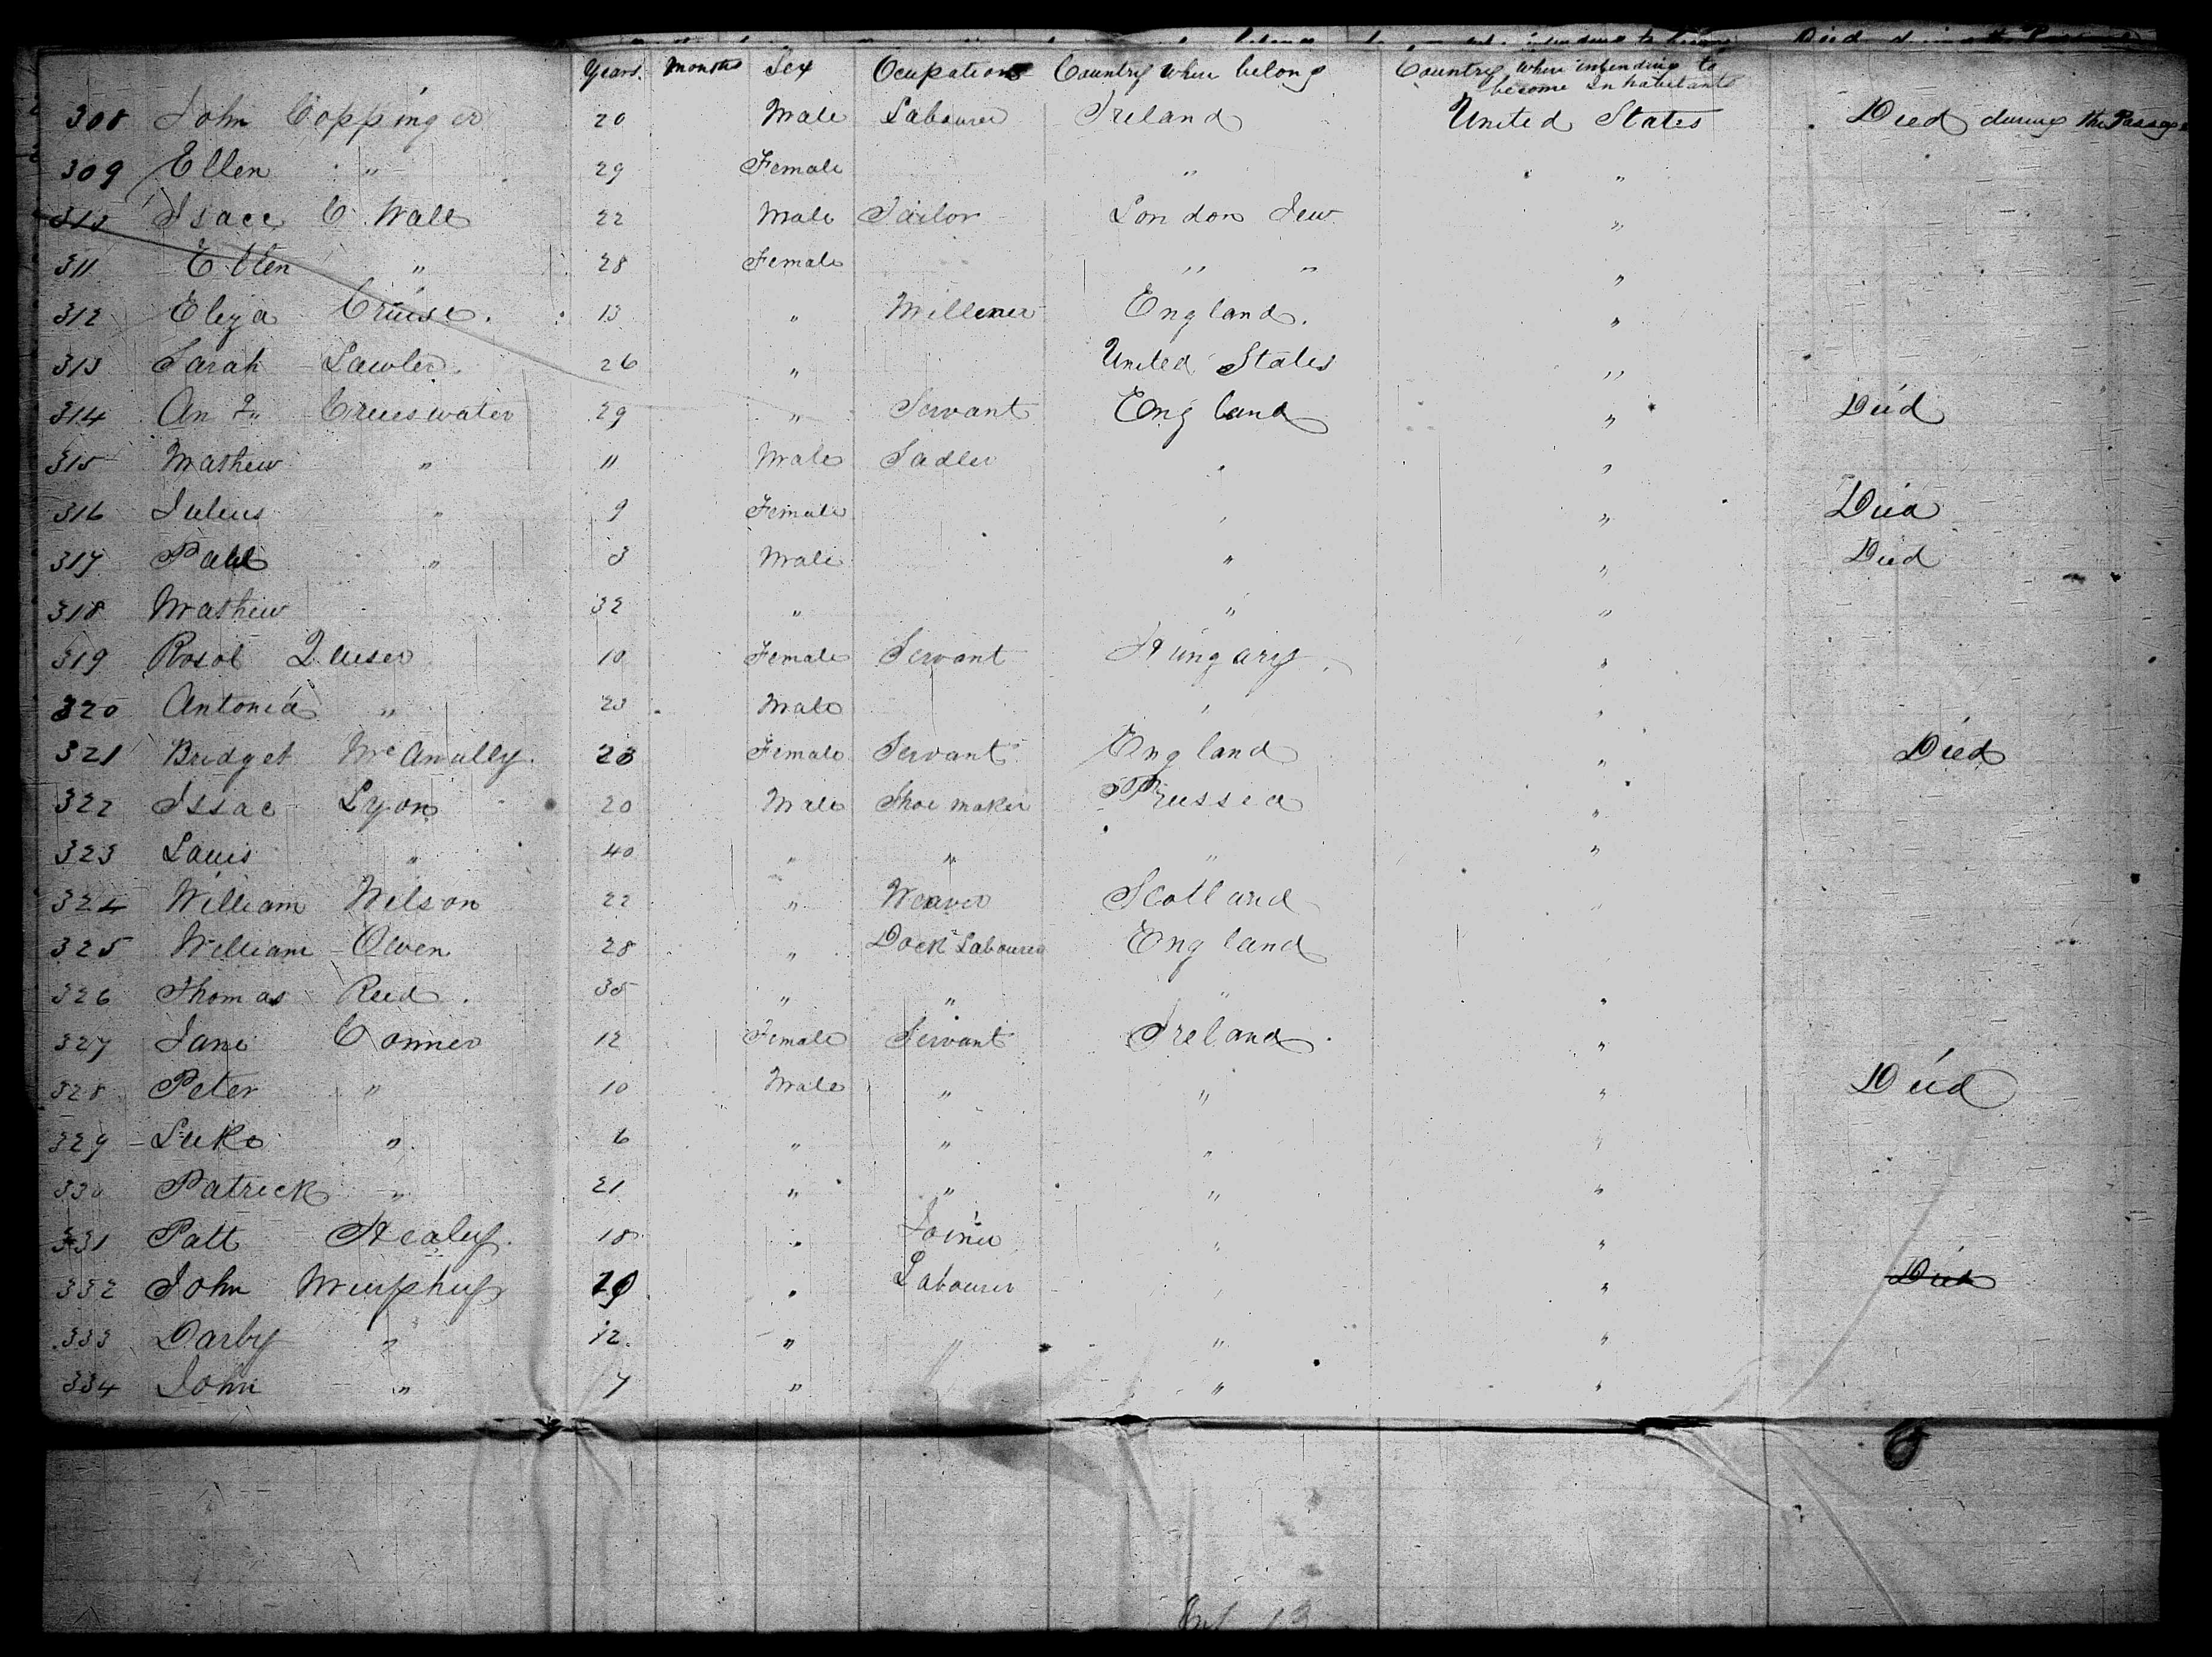 Years. Months Sex Ocupation Country where belong Country where intending to become Inhabitants
308 John Coppinger 20 Male Labourer Ireland United States Died during the Passage
309 Ellen " 29 Female " "
310 Isace C. Wall 22 Male Tailor London Jew "
311 Ellen " 28 Female " " "
312 Eliza Cruise. 13 " Millener England. "
313 Sarah Lawler. 26 " United States "
314 An Cruiswater 29 " Servant England " Died
315 Mathew " 11 Male Sadler " "
316 Julius " 9 Female " " Died
317 Paul " 3 Male " " Died
318 Mathew 32 " " "
319 Rosol 10 Female Servant Hungary. "
320 Antonia " 23 Male " "
321 Bridget McAnully. 23 Female Servant England " Died
322 Issac Lyon 20 Male Shoe maker Prussia "
323 Lauis " 40 " " " "
324 William Wilson 22 " Weaver Scotland "
325 William Owen 28 " Dock Labourer England
326 Thomas Reed. 35 " " " "
327 Jane Conner 12 Female Servant Ireland. "
328 Peter " 10 Male " " " Died
329 Luke " 6 " " " "
330 Patrick " 21 " " " "
331 Patt Healy. 18 " Joiner " "
332 John Murphy 29 " Labourer " " Died
333 Darby " 12. " " " "
334 John " 7 " " "